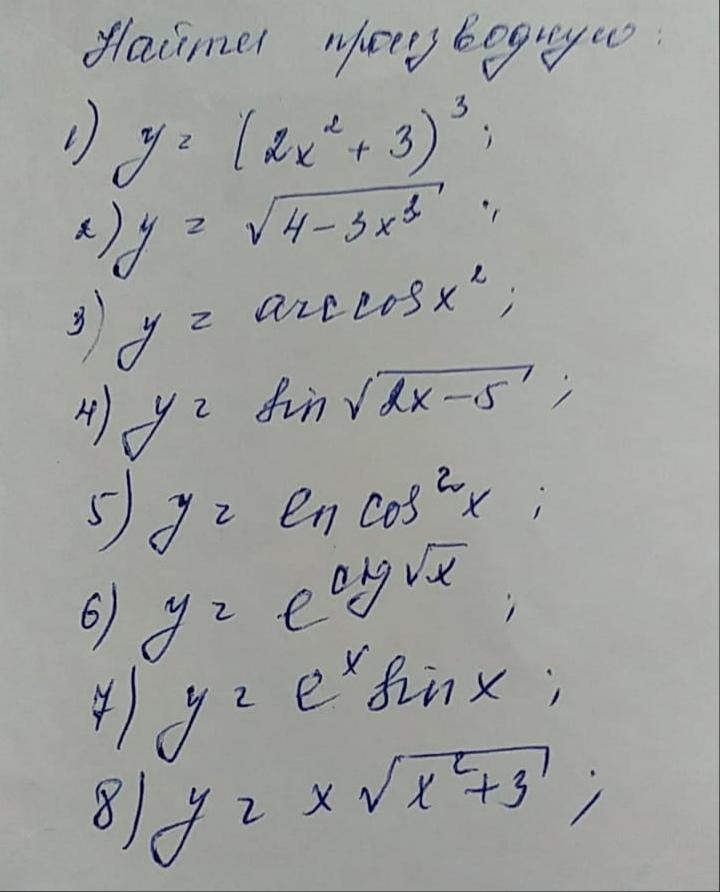 Найти производную:
1) y = (2x² + 3)³;
2) y = √(4 - 3x³);
3) y = arccos x²;
4) y = sin √(2x - 5);
5) y = ln cos² x;
6) y = e^(ctg √x);
7) y = eˣ sin x;
8) y = x √(x² + 3);